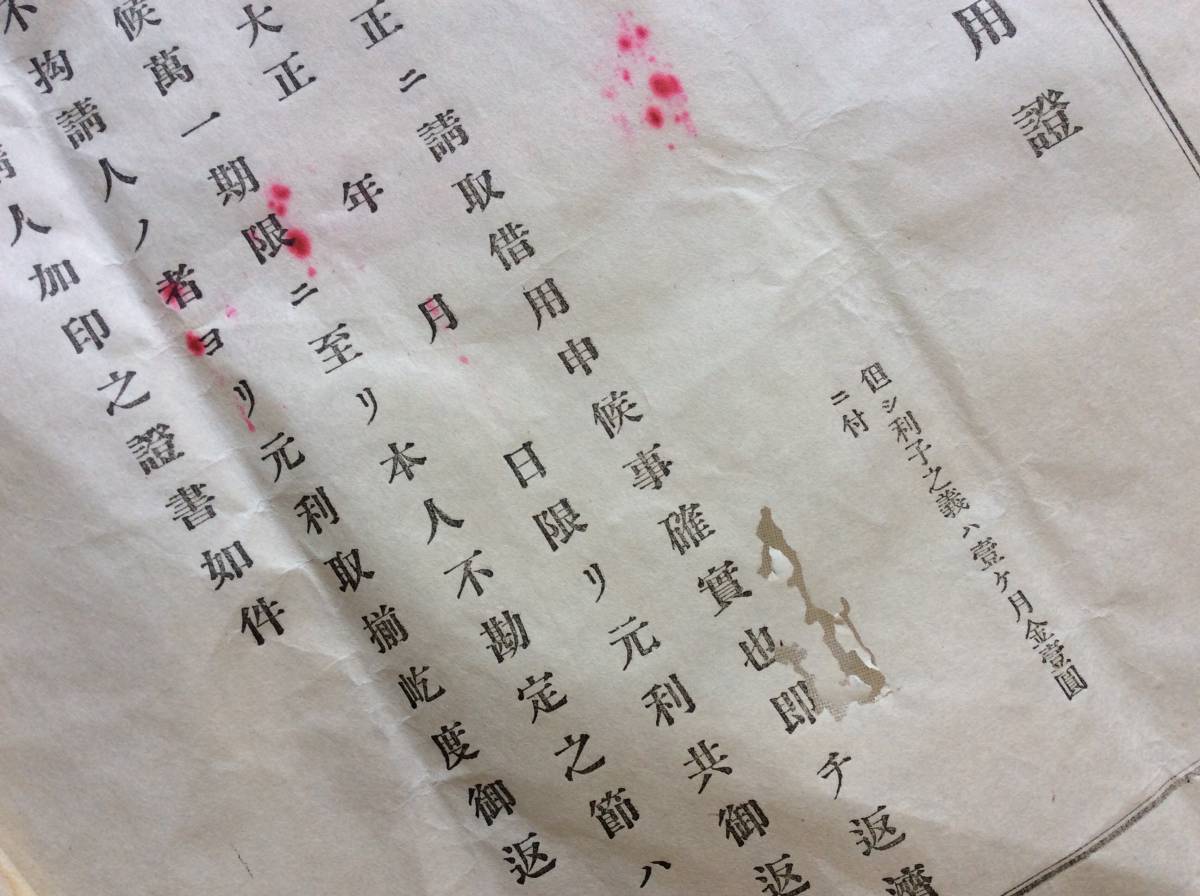 用證
但シ利子之義ハ壹ケ月金壹圓
ニ付
正ニ請取借用申候事確實也即チ返濟
大正 年 月 日限リ元利共御返
候萬一期限ニ至リ本人不勘定之節ハ
不拘請人ノ者ヨリ元利取揃屹度御返
請人加印之證書如件